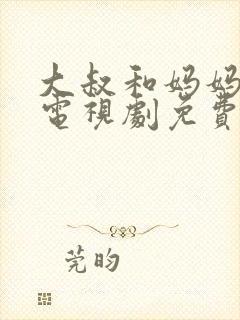 大叔和妈妈
電視劇免費
莞昀